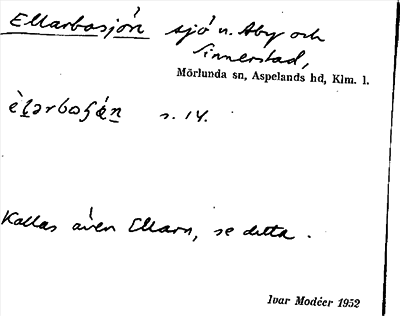 Ellarbosjön sjö u. Åby och
Sinnerstad,
Mörlunda sn, Aspelands hd, Klm. l.
s. 14.
Kallas även Ellarn, se detta.
Ivar Modéer 1952